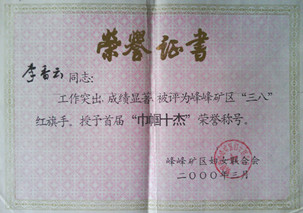 荣誉证书
李香云同志：
工作突出，成绩显著，被评为峰峰矿区“三八
红旗手。授予首届“巾帼十杰”荣誉称号。
峰峰矿区妇女联合会
二000年三月